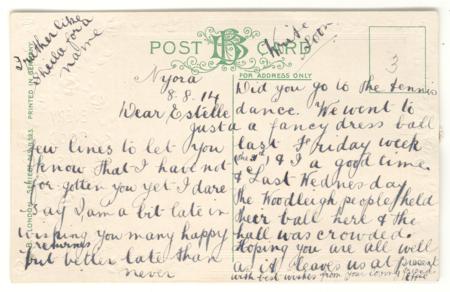 I rather like
Rheda for a
name
POST CARD
B
Write
soon
FOR ADDRESS ONLY
3
PRINTED IN GERMANY
LONDON
Nyora
8.8.14
Dear Estelle
Just a
few lines to let you
know that I have not
forgotten you yet I dare
say I am a bit late in
wishing you many happy
returns
but better late than
never
Did you go to the tennis
dance. We went to
a fancy dress ball
last Friday week
(the 31st) & I a good time
& Last Wednesday
the Woodleigh people held
their ball here & the
hall was crowded.
Hoping you are all well
as it leaves us at present
with best wishes from your loving friend
Effie